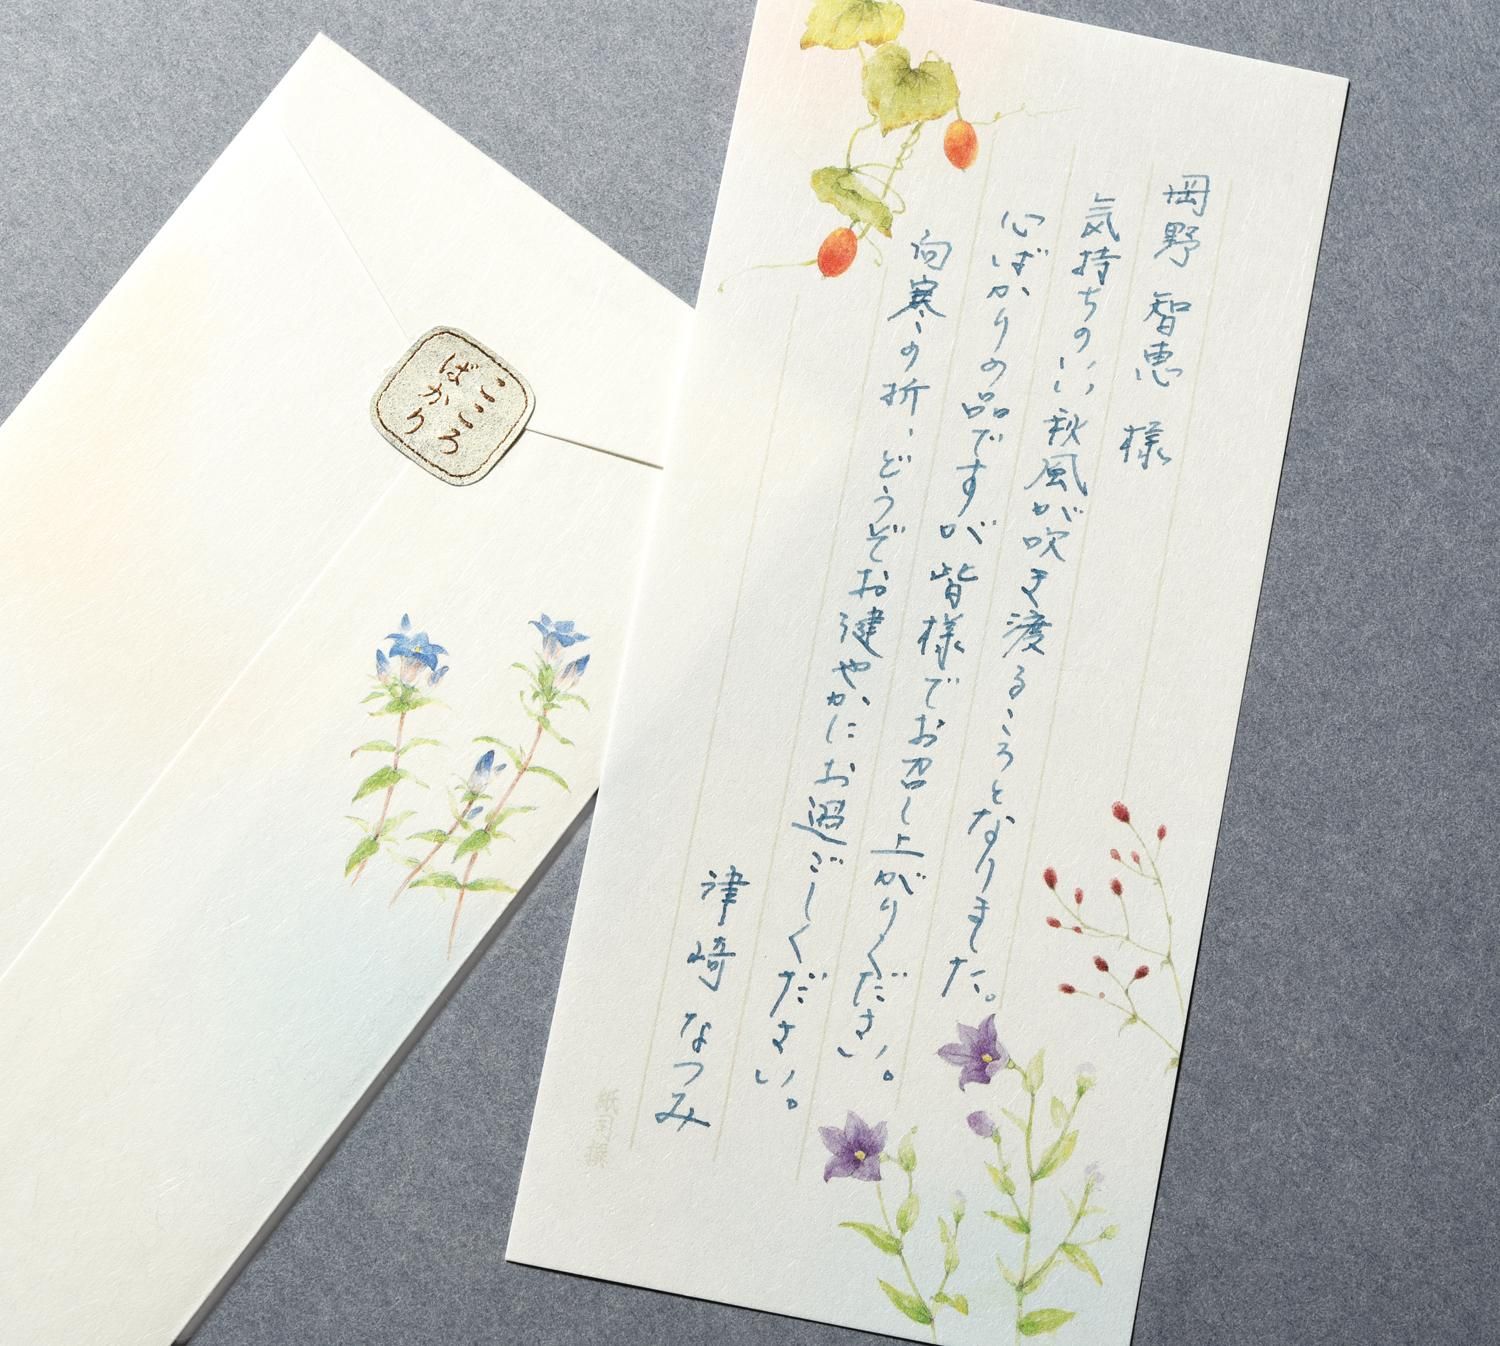 岡野 智恵 様
気持ちのいい秋風が吹き渡るころとなりました。
心ばかりの品ですが皆様でお召し上がりください。
向寒の折、どうぞお健やかにお過ごしください。
津崎 なつみ
こころ
ばかり